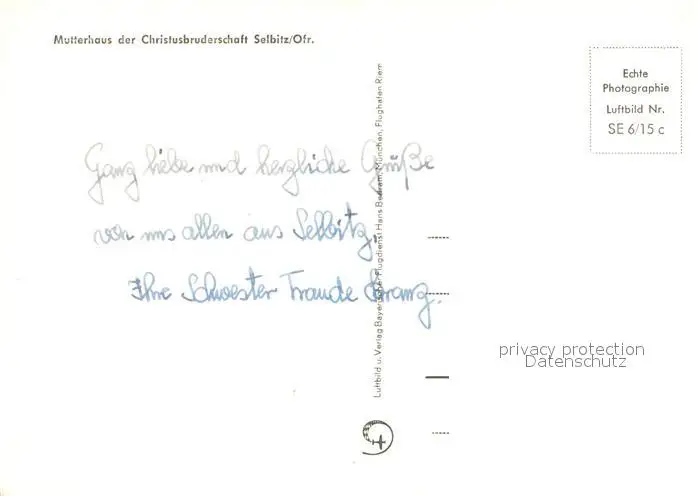 Mutterhaus der Christusbruderschaft Selbitz/Ofr.
Echte
Photographie
Luftbild Nr.
SE 6/15 c
Ganz liebe und herzliche Grüße
von uns allen aus Selbitz.
Ihre Schwester Traude
Luftbild u. Verlag Bayerischer Flugdienst Hans Bertram, München, Flughafen Riem
privacy protection
Datenschutz